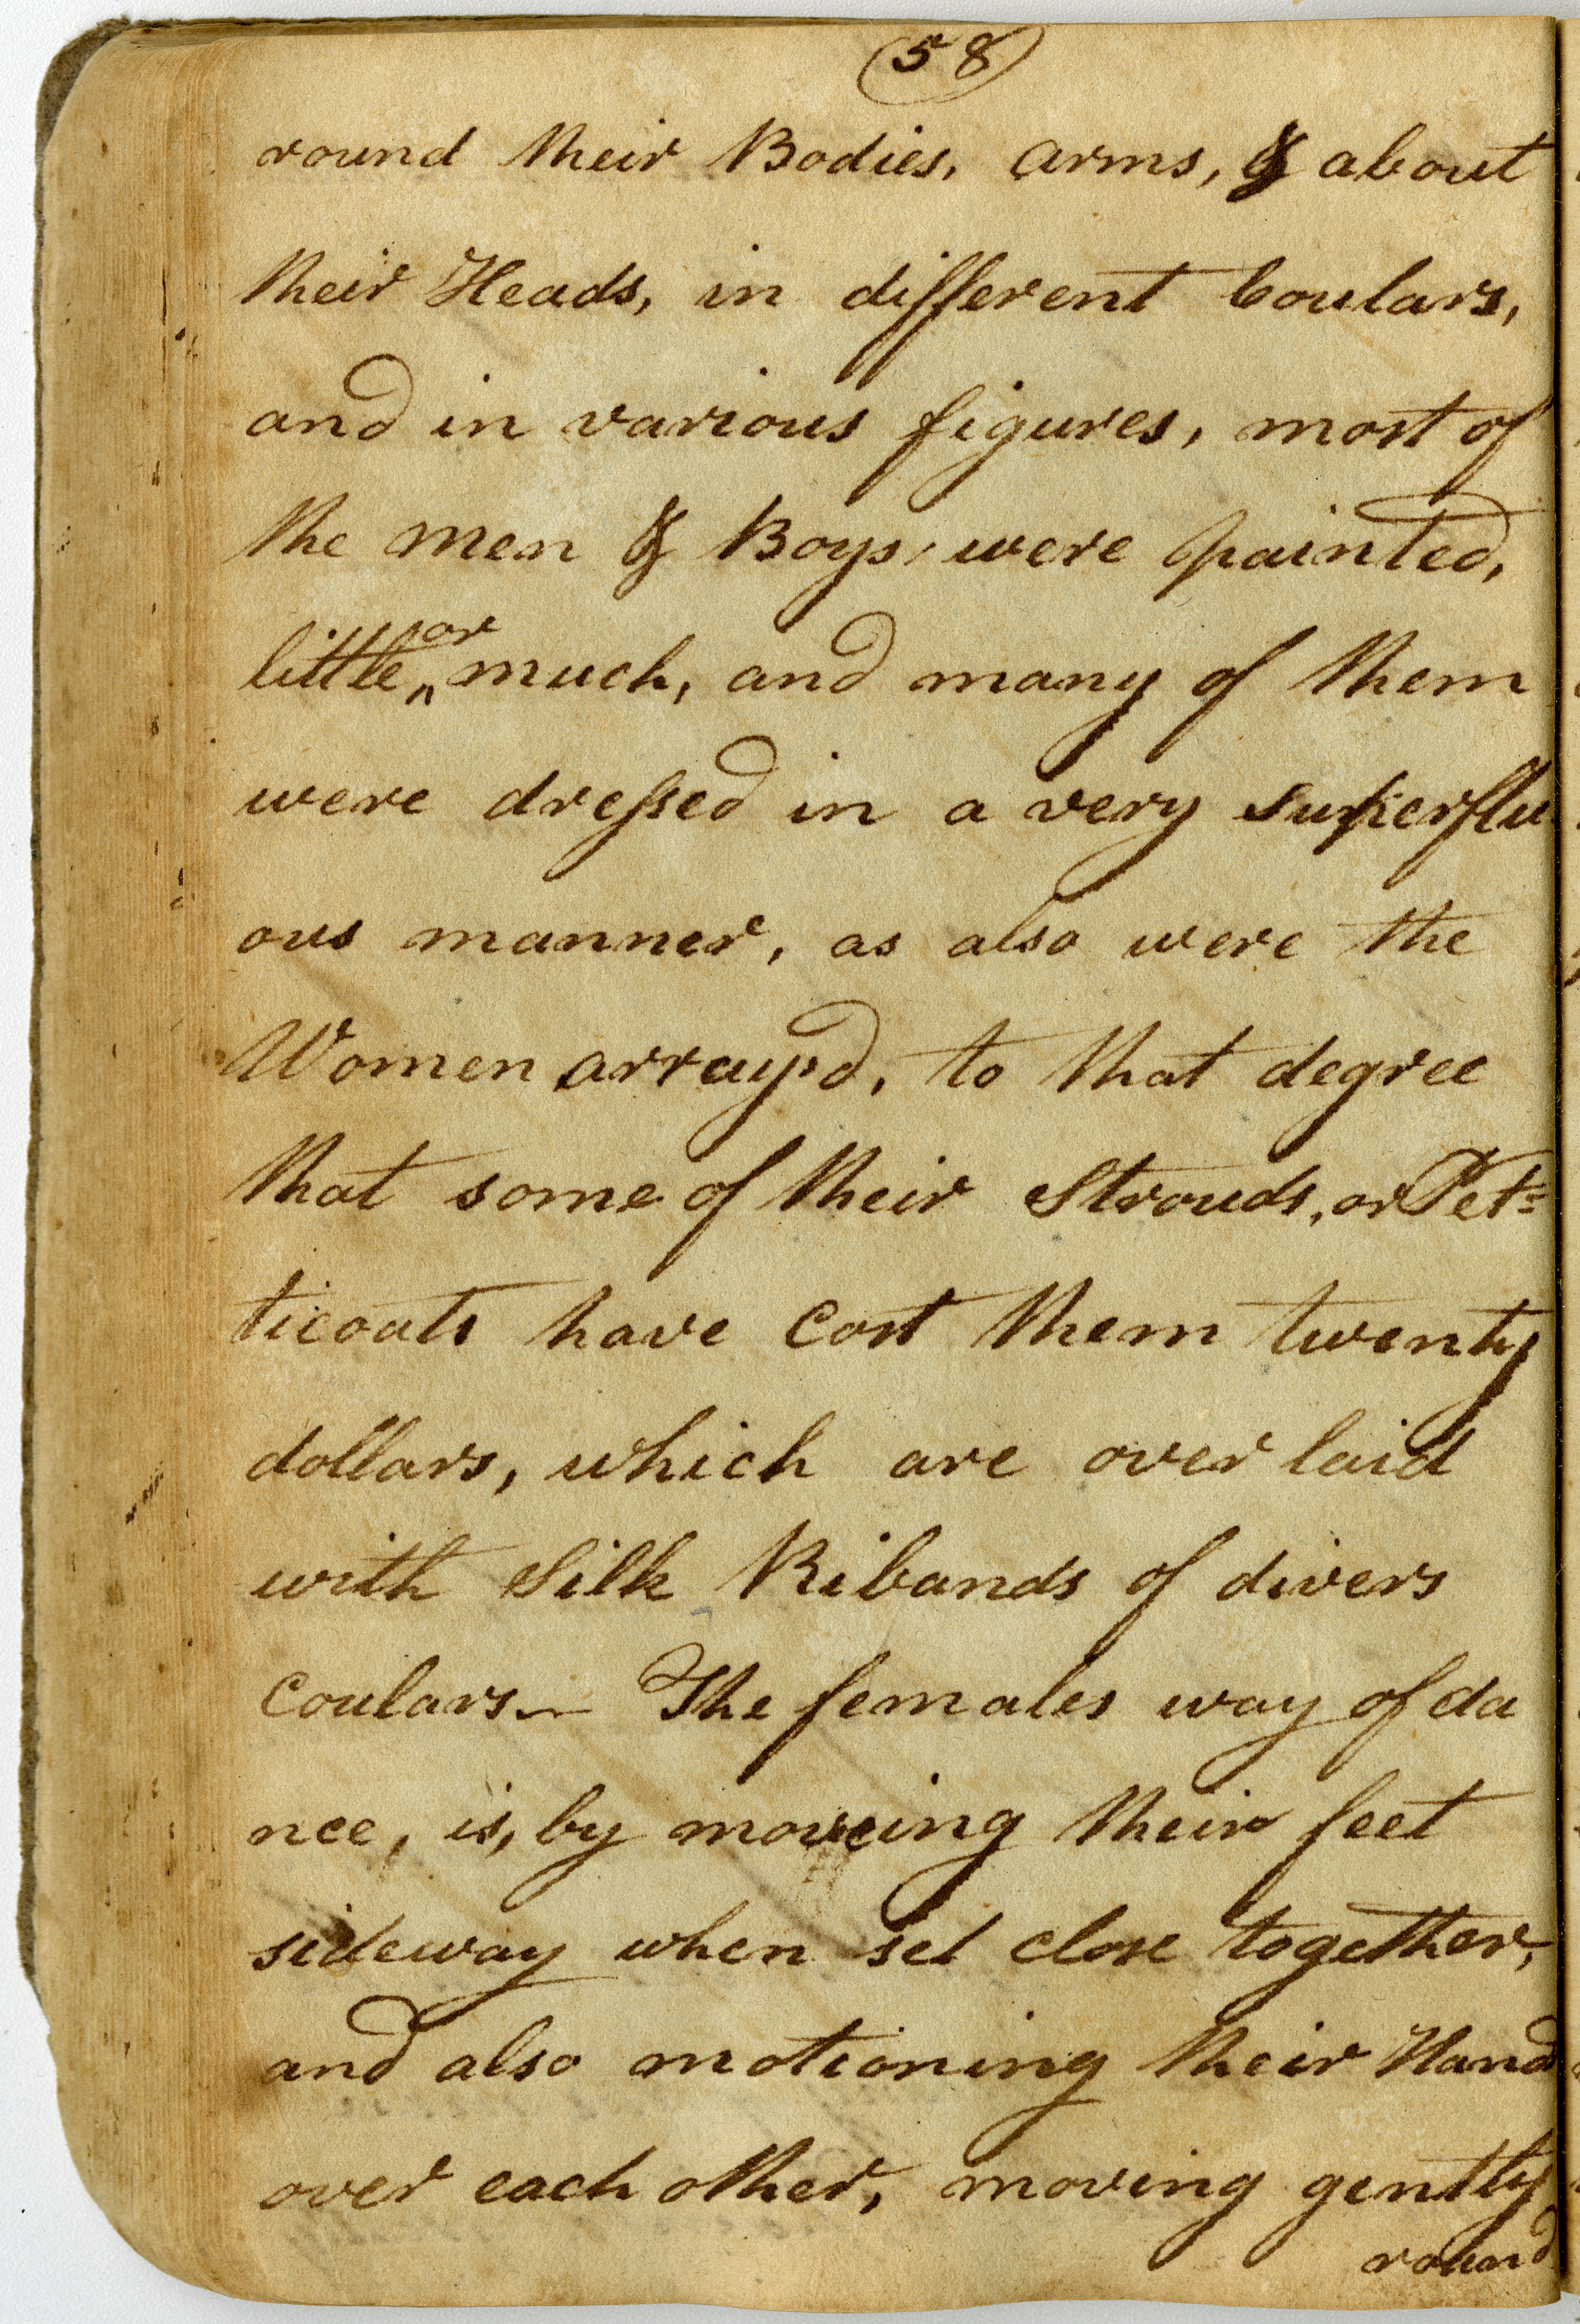 (58)
round their Bodies, arms, & about
their Heads, in different Coulars,
and in various figures, most of
the men & Boys were painted,
little or much, and many of them
were dressed in a very superflu
ous manner, as also were the
Women array'd, to that degree
that some of their Strouds, or Pet=
ticoats have Cost them twenty
dollars, which are over laid
with Silk Ribands of divers
Coulars— The females way of da
nce, is, by moveing their feet
sideway when set close together,
and also motioning their Hand
over each other, moving gently
round